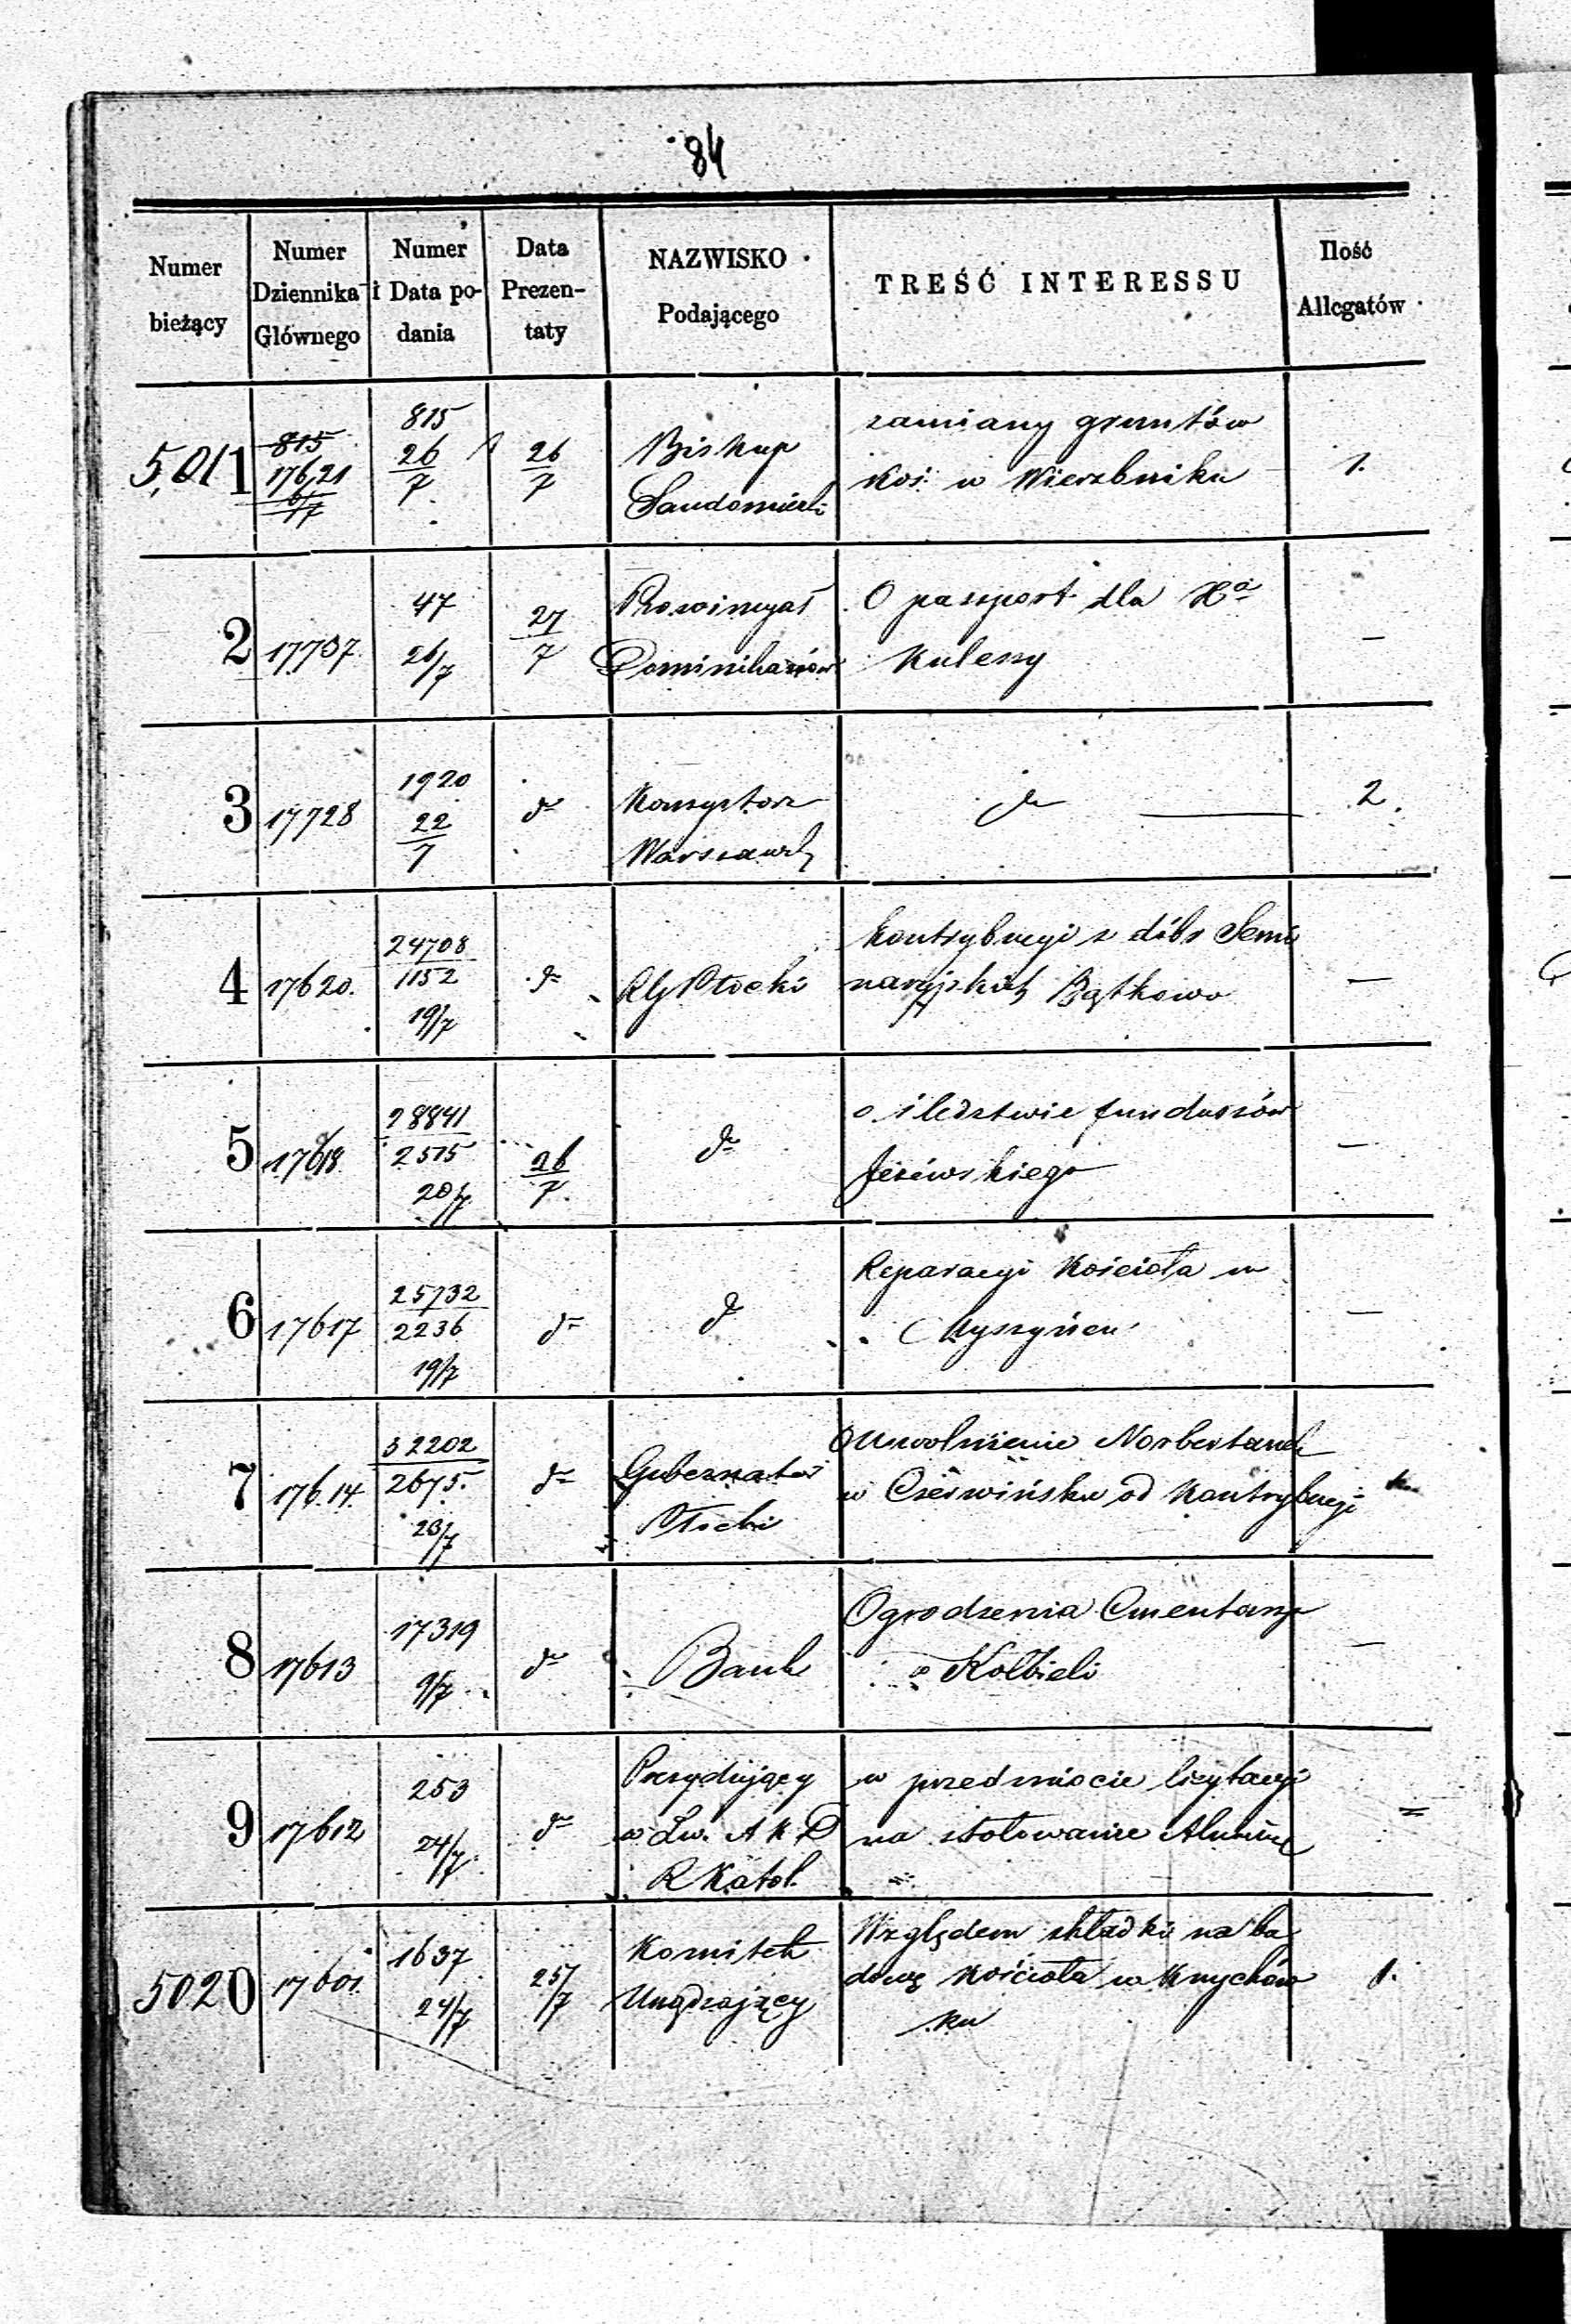 84
Numer bieżący
Numer Dziennika Głównego
Numer i Data podania
Data Prezentaty
NAZWISKO Podającego
TREŚĆ INTERESSU
Ilość Allegatów
5,011
815
17621
815
26/7
26/7
Biskup
Sandomirski
zamiany gruntów
Koś: w Wierzbniku
1.
2
17737
47
26/7
27/7
Prowincyał
Dominikanów
O passport dla Xa
Kuleszy
—
3
17728
1920
22/7
do
Konsystorz
Warszawski
do
2.
4
17620.
24708
1152
19/7
do
RG Płocki
kontrybucyi z dóbr Semi
naryjskich Bątkowo
—
5
17618
28841
2515
20/7
26/7
do
o śledztwie funduszów
Jeżewskiego
—
6
17617
25732
2236
19/7
do
do
Reparacyi Kościoła w
Myszyńcu
—
7
17614.
32202
2675.
23/7
do
Gubernator
Płocki
O uwolnienie Norbertanek
w Czerwińsku od Kontrybucyi
8
17613
17319
9/7
do
Bank
Ogrodzenia Cmentarza
w Kołbieli
—
9
17612
253
24/7
do
Prezydujący
w Zw. A K D
R Katol.
w przedmiocie licytacyi
na stołowanie Alumnów
=
5020
17601
1637
24/7
25/7
Komitet
Urządzający
Względem składki na bu
dowę Kościoła w Knychów
ku
1.